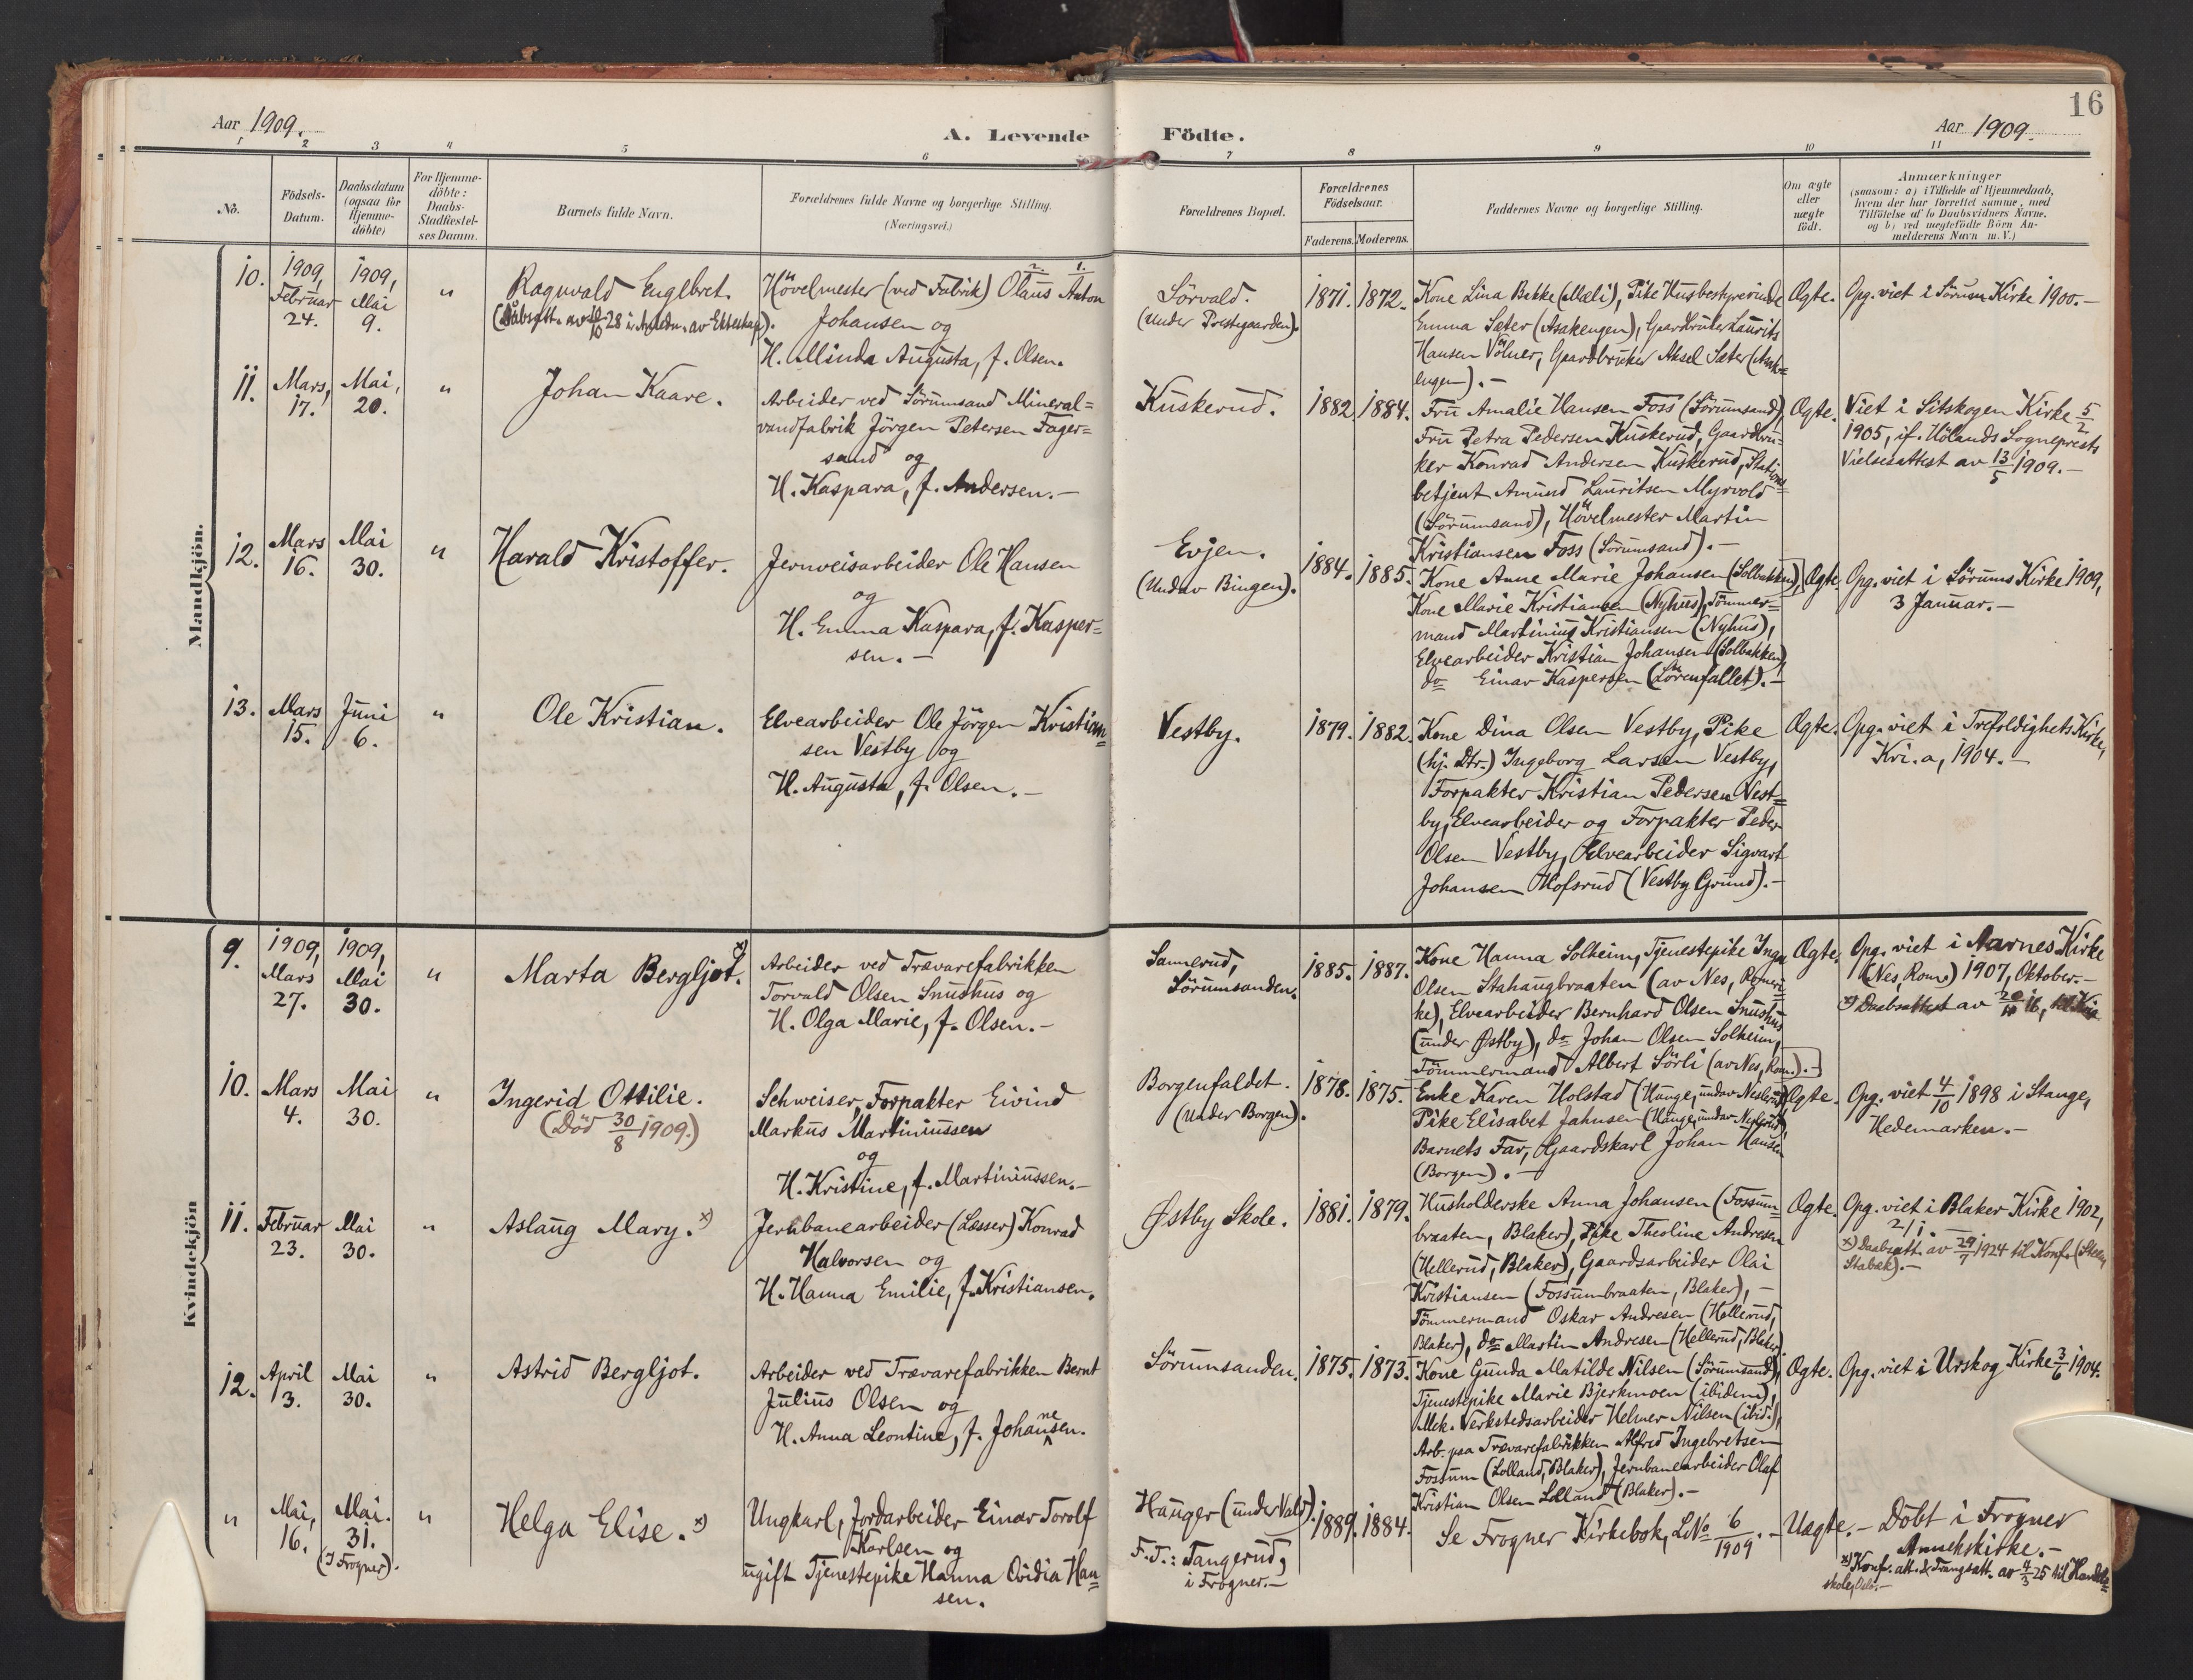 16
Aar 1909.
A. Levende Födte.
Aar 1909.
1 2 3 4 5 6 7 8 9 10 11
No.
Födsels-
Datum.
Daabsdatum
(ogsaa for
Hjemme-
döbte)
For Hjemme-
döbte:
Daabs-
Stadfæstel-
ses Datum.
Barnets fulde Navn.
Forældrenes fulde Navne og borgerlige Stilling.
(Næringsvei.)
Forældrenes Bopæl.
Forældrenes
Födselsaar.
Faderens. Moderens.
Faddernes Navne og borgerlige Stilling.
Om ægte
eller
uægte
födt.
Anmærkninger
(saasom: a) i Tilfælde af Hjemmedaab,
hvem der har forrettet samme, med
Tilföielse af to Daabsvidners Navne.
og b) ved uægtefödte Börn An-
melderens Navn m. V.)
Mandkjön.
10.
1909,
Februar
24.
1909,
Mai
9.
"
Ragnvald Englbret.
(Dåbsatt. av 28 i Anledn. av Ekteskap).
Hövelmester (ved Fabrik) Olaus Anton
2. 1.
Johansen og
H. Minda Augusta, f. Olsen.
Sörvald.
(under Prestegaarden).
1871. 1872.
Kone Lina Bekke (Mæli), Pike Husbestyrerinde
Emma Sæter (Asakengen), Gaardbruker Laurits
Hansen Völner, Gaardbruker Aksel Sæter (Asak=
engen).-
Ægte.
Opg. viet i Sörum Kirke 1900.-
11.
Mars,
17.
Mai,
20.
"
Johan Kaare.
Arbeider ved Sörumsand Mineral=
vandfabrik Jörgen Petersen Fager=
sand og
H. Kaspara, f. Andersen.-
Kuskerud.
1882 1884.
Fru Amalie Hansen Foss (Sörumsand),
Fru Petra Pedersen Kuskerud, Gaardbru=
ker Konrad Andersen Kuskerud, Stations=
betjent Amund Lauritsen Myrvold
(Sörumsand), Hövelmester Martin
Kristiansen Foss (Sörumsand).-
Ægte.
Viet i Sitskogen Kirke 5/2
1905, if. Hölands Sogneprests
Vielsesattest av 13/5 1909.-
12.
Mars
16.
Mai
30.
"
Harald Kristoffer.
Jernveisarbeider Ole Hansen
og
H. Emma Kaspara, f. Kasper=
sen.-
Evjen.
(Under Bingen).
1884. 1885.
Kone Anne Marie Johansen (Solbakken),
Kone Marie Kristiansen (Nyhus), Tömmer=
mand Martinius Kristiansen (Nyhus),
Elvearbeider Kristian Johansen (Solbakken),
do Einar Kaspersen (Sörenfallet).-
Ægte.
Opg. viet i Sörums Kirke 1909,
3 Januar.-
13.
Mars
15.
Juni
6.
"
Ole Kristian.
Elvearbeider Ole Jörgen Kristian=
sen Vestby og
H. Augusta, f. Olsen.-
Vestby.
1879. 1882.
Kone Dina Olsen Vestby, Pike
(hj. Dtr.) Ingeborg Larsen Vestby,
Forpakter Kristian Pedersen Vest=
by, Elvearbeider og Forpakter Peder
Olsen Vestby, Elvearbeider Sigvart
Johansen Hofsrud (Vestby Grund).-
Ægte.
Opg. viet i Trefoldighets Kirke,
Kri.a, 1904.-
Kvindekjön
9.
1909,
Mars
27.
1909,
Mai
30.
"
Marta Bergljot. x)
Arbeider ved Trævarefabrikken
Torvald Olsen Snushus og
H. Olga Marie, f. Olsen.-
Sannerud,
Sörumsanden.
1885. 1887.
Kone Hanna Solheim, Tjenestepike Inga
Olsen Stahaugbraaten (av Nes, Romeri=
ke), Elvearbeider Bernhard Olsen Snushus
(under Østby), do Johan Olsen Solheim,
Tömmermand Albert Sörli (av Nes, Rom.).-
Ægte.
Opg. viet i Aarnes Kirke
(Nes, Rome) 1907, Oktober.-
x) Daabsattest av 16,
10.
Mars
4.
Mai
30.
"
Ingerid Ottilie.
(Död 30/8 1909.)
Schweiser, Forpakter Eivind
Markus Martiniussen
og
H. Kristine, f. Martiniussen.-
Borgenfaldet.
(under Borgen).
1878. 1875.
Enke Karen Holstad (Hauge, under Neslerud),
Pike Elisabet Jahnsen (Hauge, under Neslerud),
Barnets Far, Gaardskarl Johan Hansen
(Borgen).-
Ægte.
Opg. viet 4/10 1898 i Stange,
Hedemarken.-
11.
Februar
23.
Mai
30.
"
Aslaug Mary. x)
Jernbanearbeider (Læsser) Konrad
Halvorsen og
H. Hanna Emilie, f. Kristiansen.
Østby Skole.
1881. 1879.
Husholderske Anna Johansen (Fossum=
braaten, Blaker), Pike Theoline Andresen
(Hellerud, Blaker), Gaardsarbeider Olai
Kristiansen (Fossumbraaten, Blaker),-
Tömmermand Oskar Andresen (Hellerud,
Blaker), do Martin Andresen (Hellerud, Blaker).
Ægte.
Opg. viet i Blaker Kirke 1902,
2/1.-
x) Daabsatt. av 29/7 1924 til Konf. (
Stabæk).-
12.
April
3.
Mai
30.
"
Astrid Bergljot.
Arbeider ved Trævarefabrikken Bernt
Julius Olsen og
H. Anna Leontine, f. Johannesen.
Sörumsanden.
1875. 1873.
Kone Gunda Matilde Nilsen (Sörumsand),
Tjenestepike Marie Bjerkmoen (ibidem),
Mek. Verkstedsarbeider Helmer Nilsen (ibid.),
Arb. paa Trævarefabrikken Alfred Ingebretsen
Fossum (Lolland, Blaker), Jernbanearbeider Olaf
Kristian Olsen Lolland (Blaker).-
Ægte.
Opg. viet i Urskog Kirke 3/6 1904.
"
Mai,
16.
Mai.
31.
(I Frogner).
"
Helga Elise. x)
Ungkarl, Jordarbeider Einar Torolf
Karlsen og
ugift Tjenestepike Hanna Ovidia Han=
sen.
Hauger (under Vald).
F. T.: Tangerud,
i Frogner.-
1889. 1884.
Se Frogner Kirkebok, L.No 6/1909.-
Uægte.-
Döbt i Frogner
Annekskirke.-
x) Konf. att. & Trangsatt. av 4/3 25 til Handels=
skole, Oslo.-